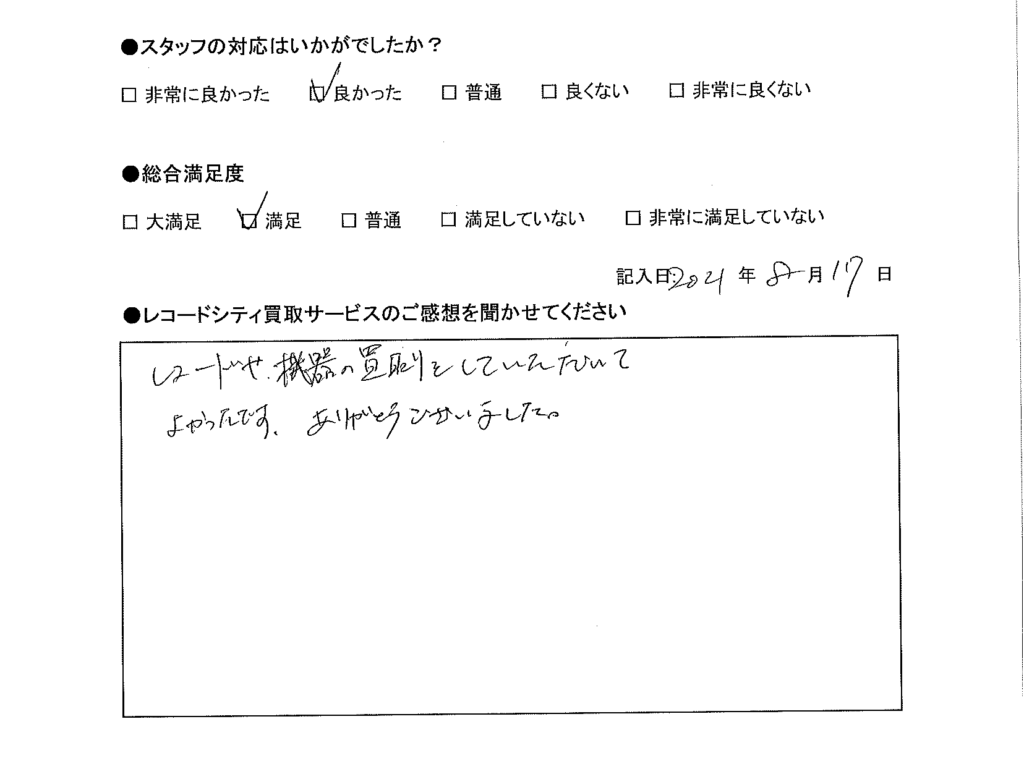 ●スタッフの対応はいかがでしたか？
□ 非常に良かった ☑ 良かった □ 普通 □ 良くない □ 非常に良くない
●総合満足度
□ 大満足 ☑ 満足 □ 普通 □ 満足していない □ 非常に満足していない
記入日:2021 年 8 月 17 日
●レコードシティ買取サービスのご感想を聞かせてください
レコードや、機器の買取りをしていただいて
よかったです、ありがとうございました。